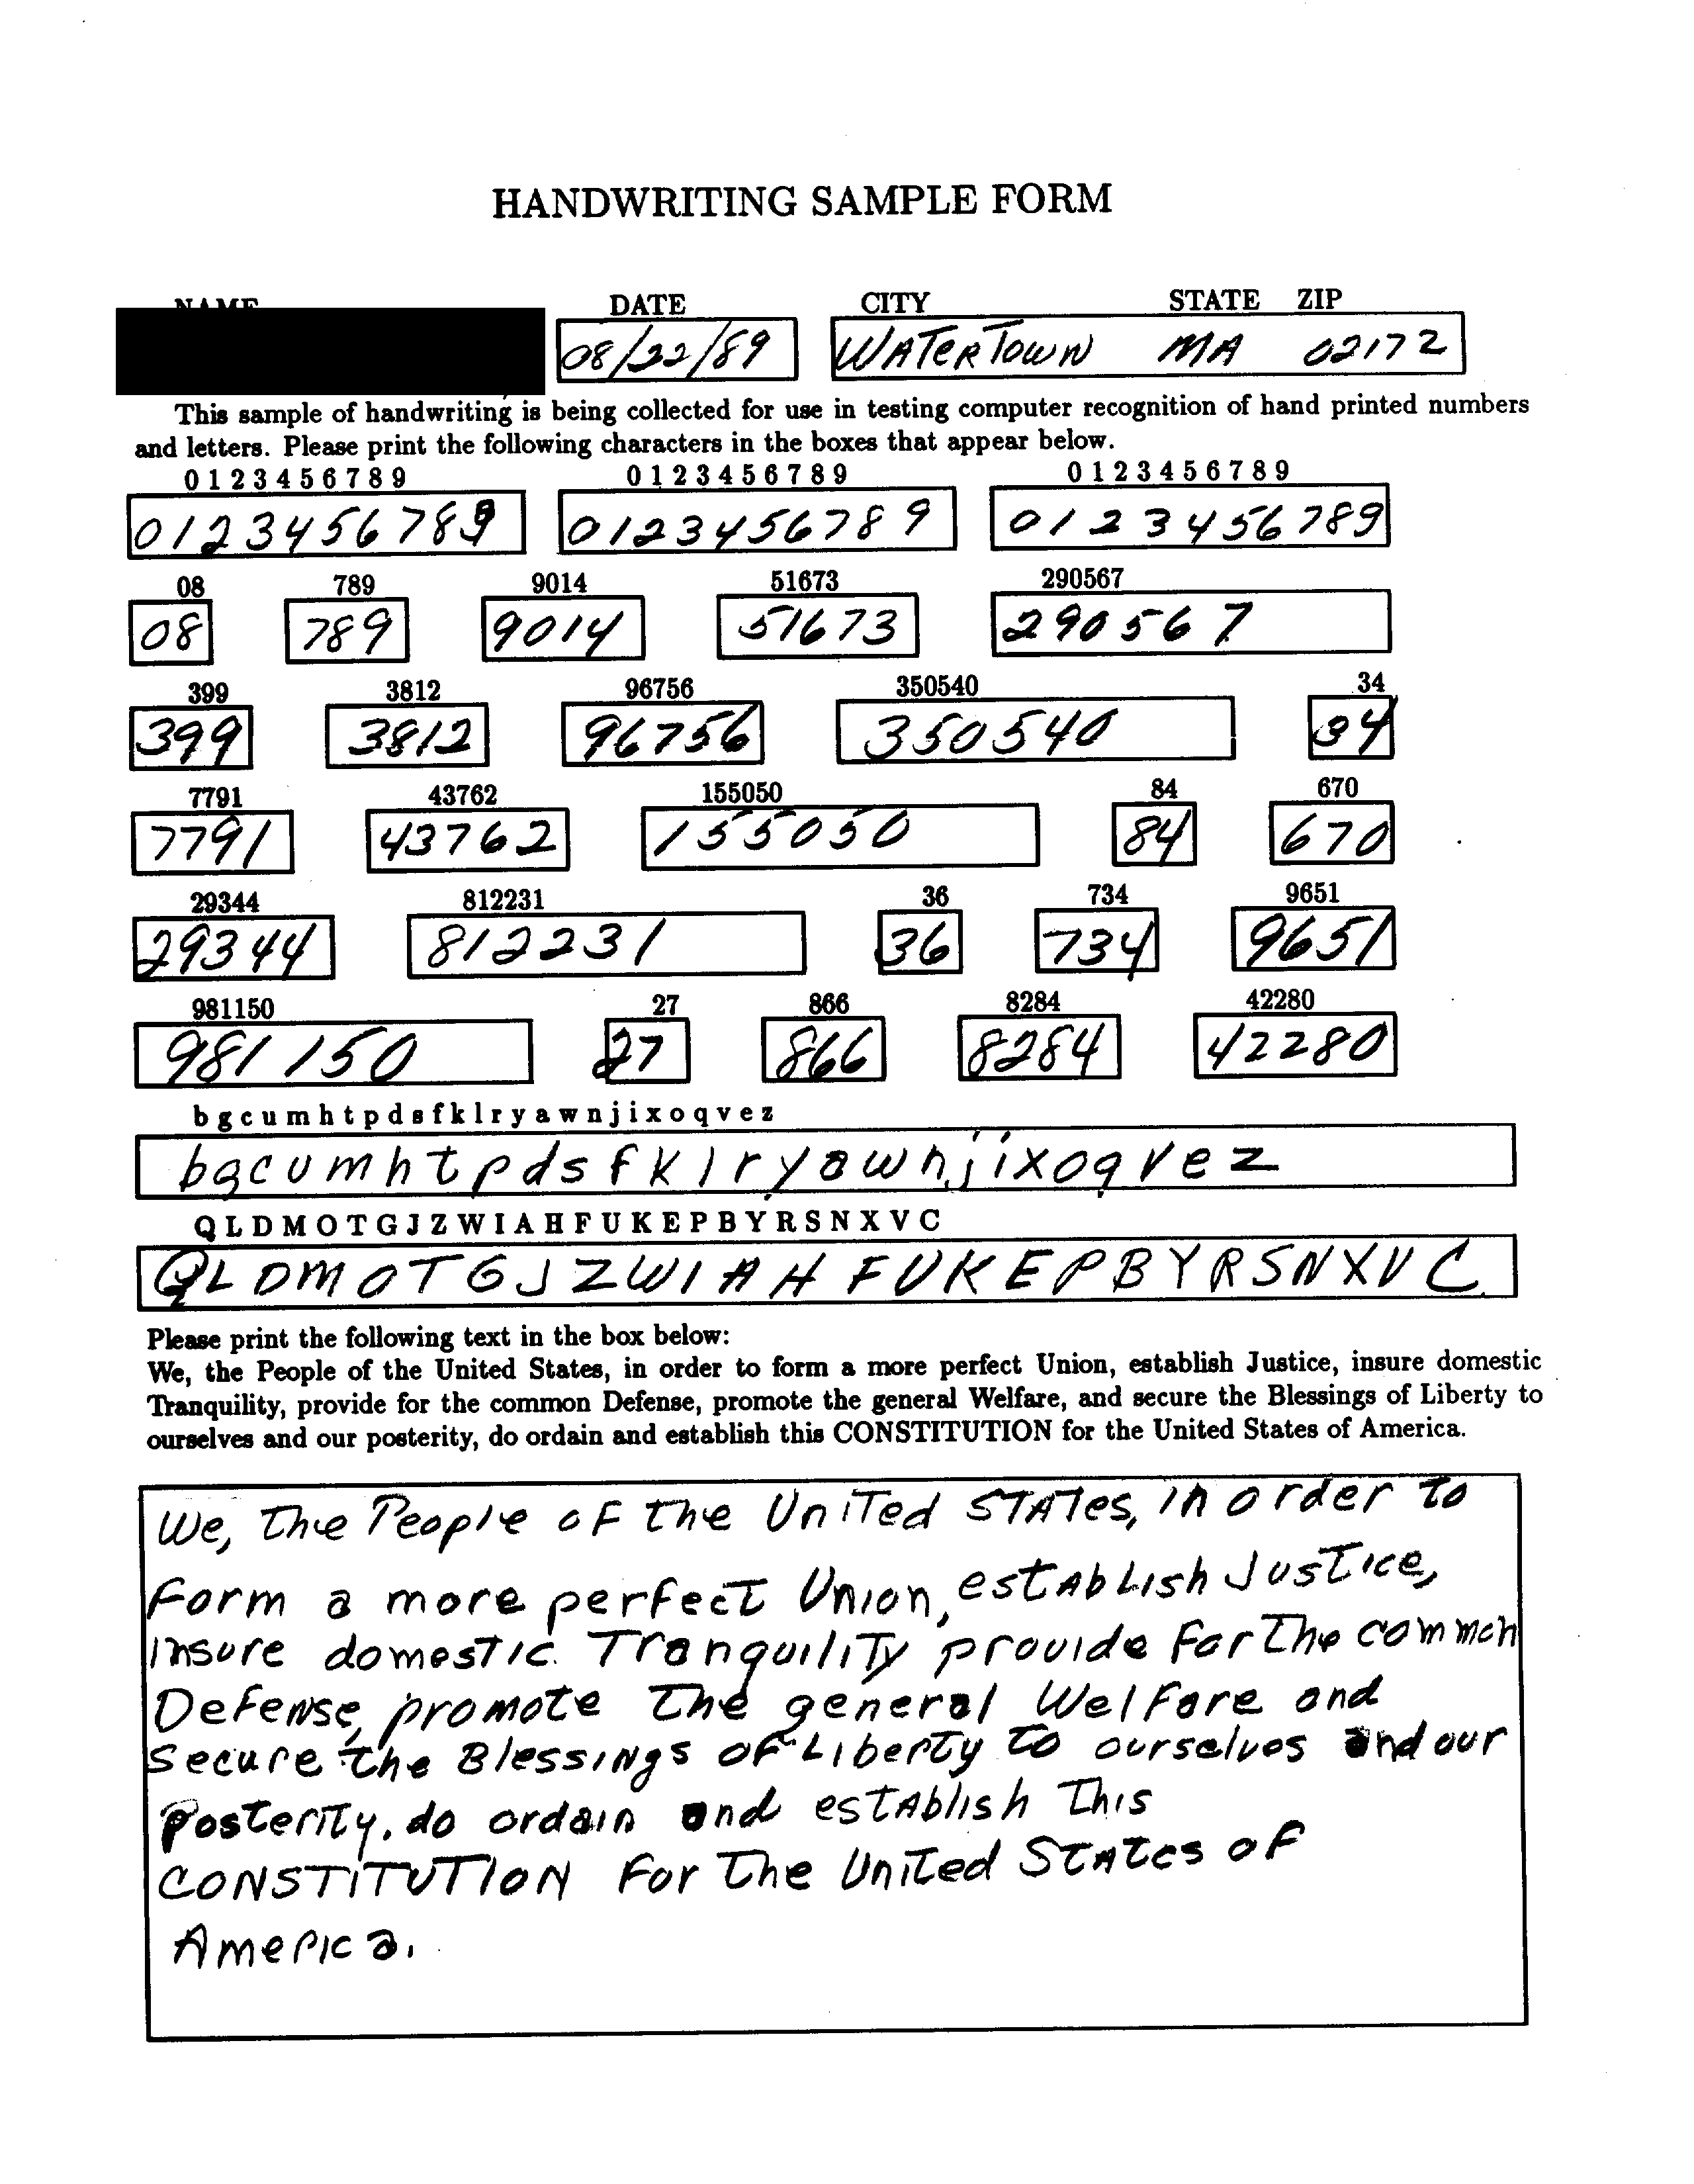 HANDWRITING SAMPLE FORM
NAME DATE CITY STATE ZIP
08/22/89 WATERTOWN MA 02172
This sample of handwriting is being collected for use in testing computer recognition of hand printed numbers
and letters. Please print the following characters in the boxes that appear below.
0 1 2 3 4 5 6 7 8 9 0 1 2 3 4 5 6 7 8 9 0 1 2 3 4 5 6 7 8 9
0123456789 0123456789 0123456789
08 789 9014 51673 290567
08 789 9014 51673 290567
399 3812 96756 350540 34
399 3812 96756 350540 34
7791 43762 155050 84 670
7791 43762 155050 84 670
29344 812231 36 734 9651
29344 812231 36 734 9651
981150 27 866 8284 42280
981150 27 866 8284 42280
b g c u m h t p d s f k l r y a w n j i x o q v e z
b g c u m h t p d s f k l r y a w n j i x o q v e z
Q L D M O T G J Z W I A H F U K E P B Y R S N X V C
Q L D M O T G J Z W I A H F U K E P B Y R S N X V C
Please print the following text in the box below:
We, the People of the United States, in order to form a more perfect Union, establish Justice, insure domestic
Tranquility, provide for the common Defense, promote the general Welfare, and secure the Blessings of Liberty to
ourselves and our posterity, do ordain and establish this CONSTITUTION for the United States of America.
We, the People of the United States, in order to
form a more perfect Union, establish Justice,
insure domestic Tranquility provide for the common
Defense, promote the general Welfare and
secure the Blessings of Liberty to ourselves and our
posterity, do ordain and establish This
CONSTITUTION for the United States of
America.